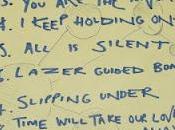 3. YOU ARE THE
4. I KEEP HOLDING ON
5. ALL IS SILENT
LAZER GUIDED BOM
SLIPPING UNDER
TIME WILL TAKE OUR LOV